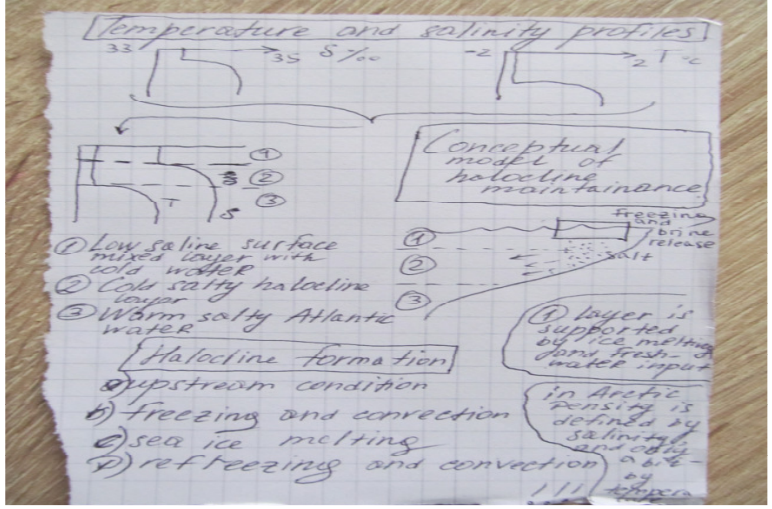 Temperature and salinity profiles
33 35 S ‰
-2 2 T °C
① ② ③
T S
Conceptual
model of
halocline
maintainance
freezing
and
brine
release
salt
①
②
③
① Low saline surface
mixed layer with
cold water
② Cold salty halocline
layer
③ Warm salty Atlantic
water
① Layer is
supported
by ice melting
and fresh-
water input
Halocline formation
a) upstream condition
b) freezing and convection
c) sea ice melting
d) refreezing and convection
in Arctic
density is
defined by
salinity
and only
a bit
by
tempera